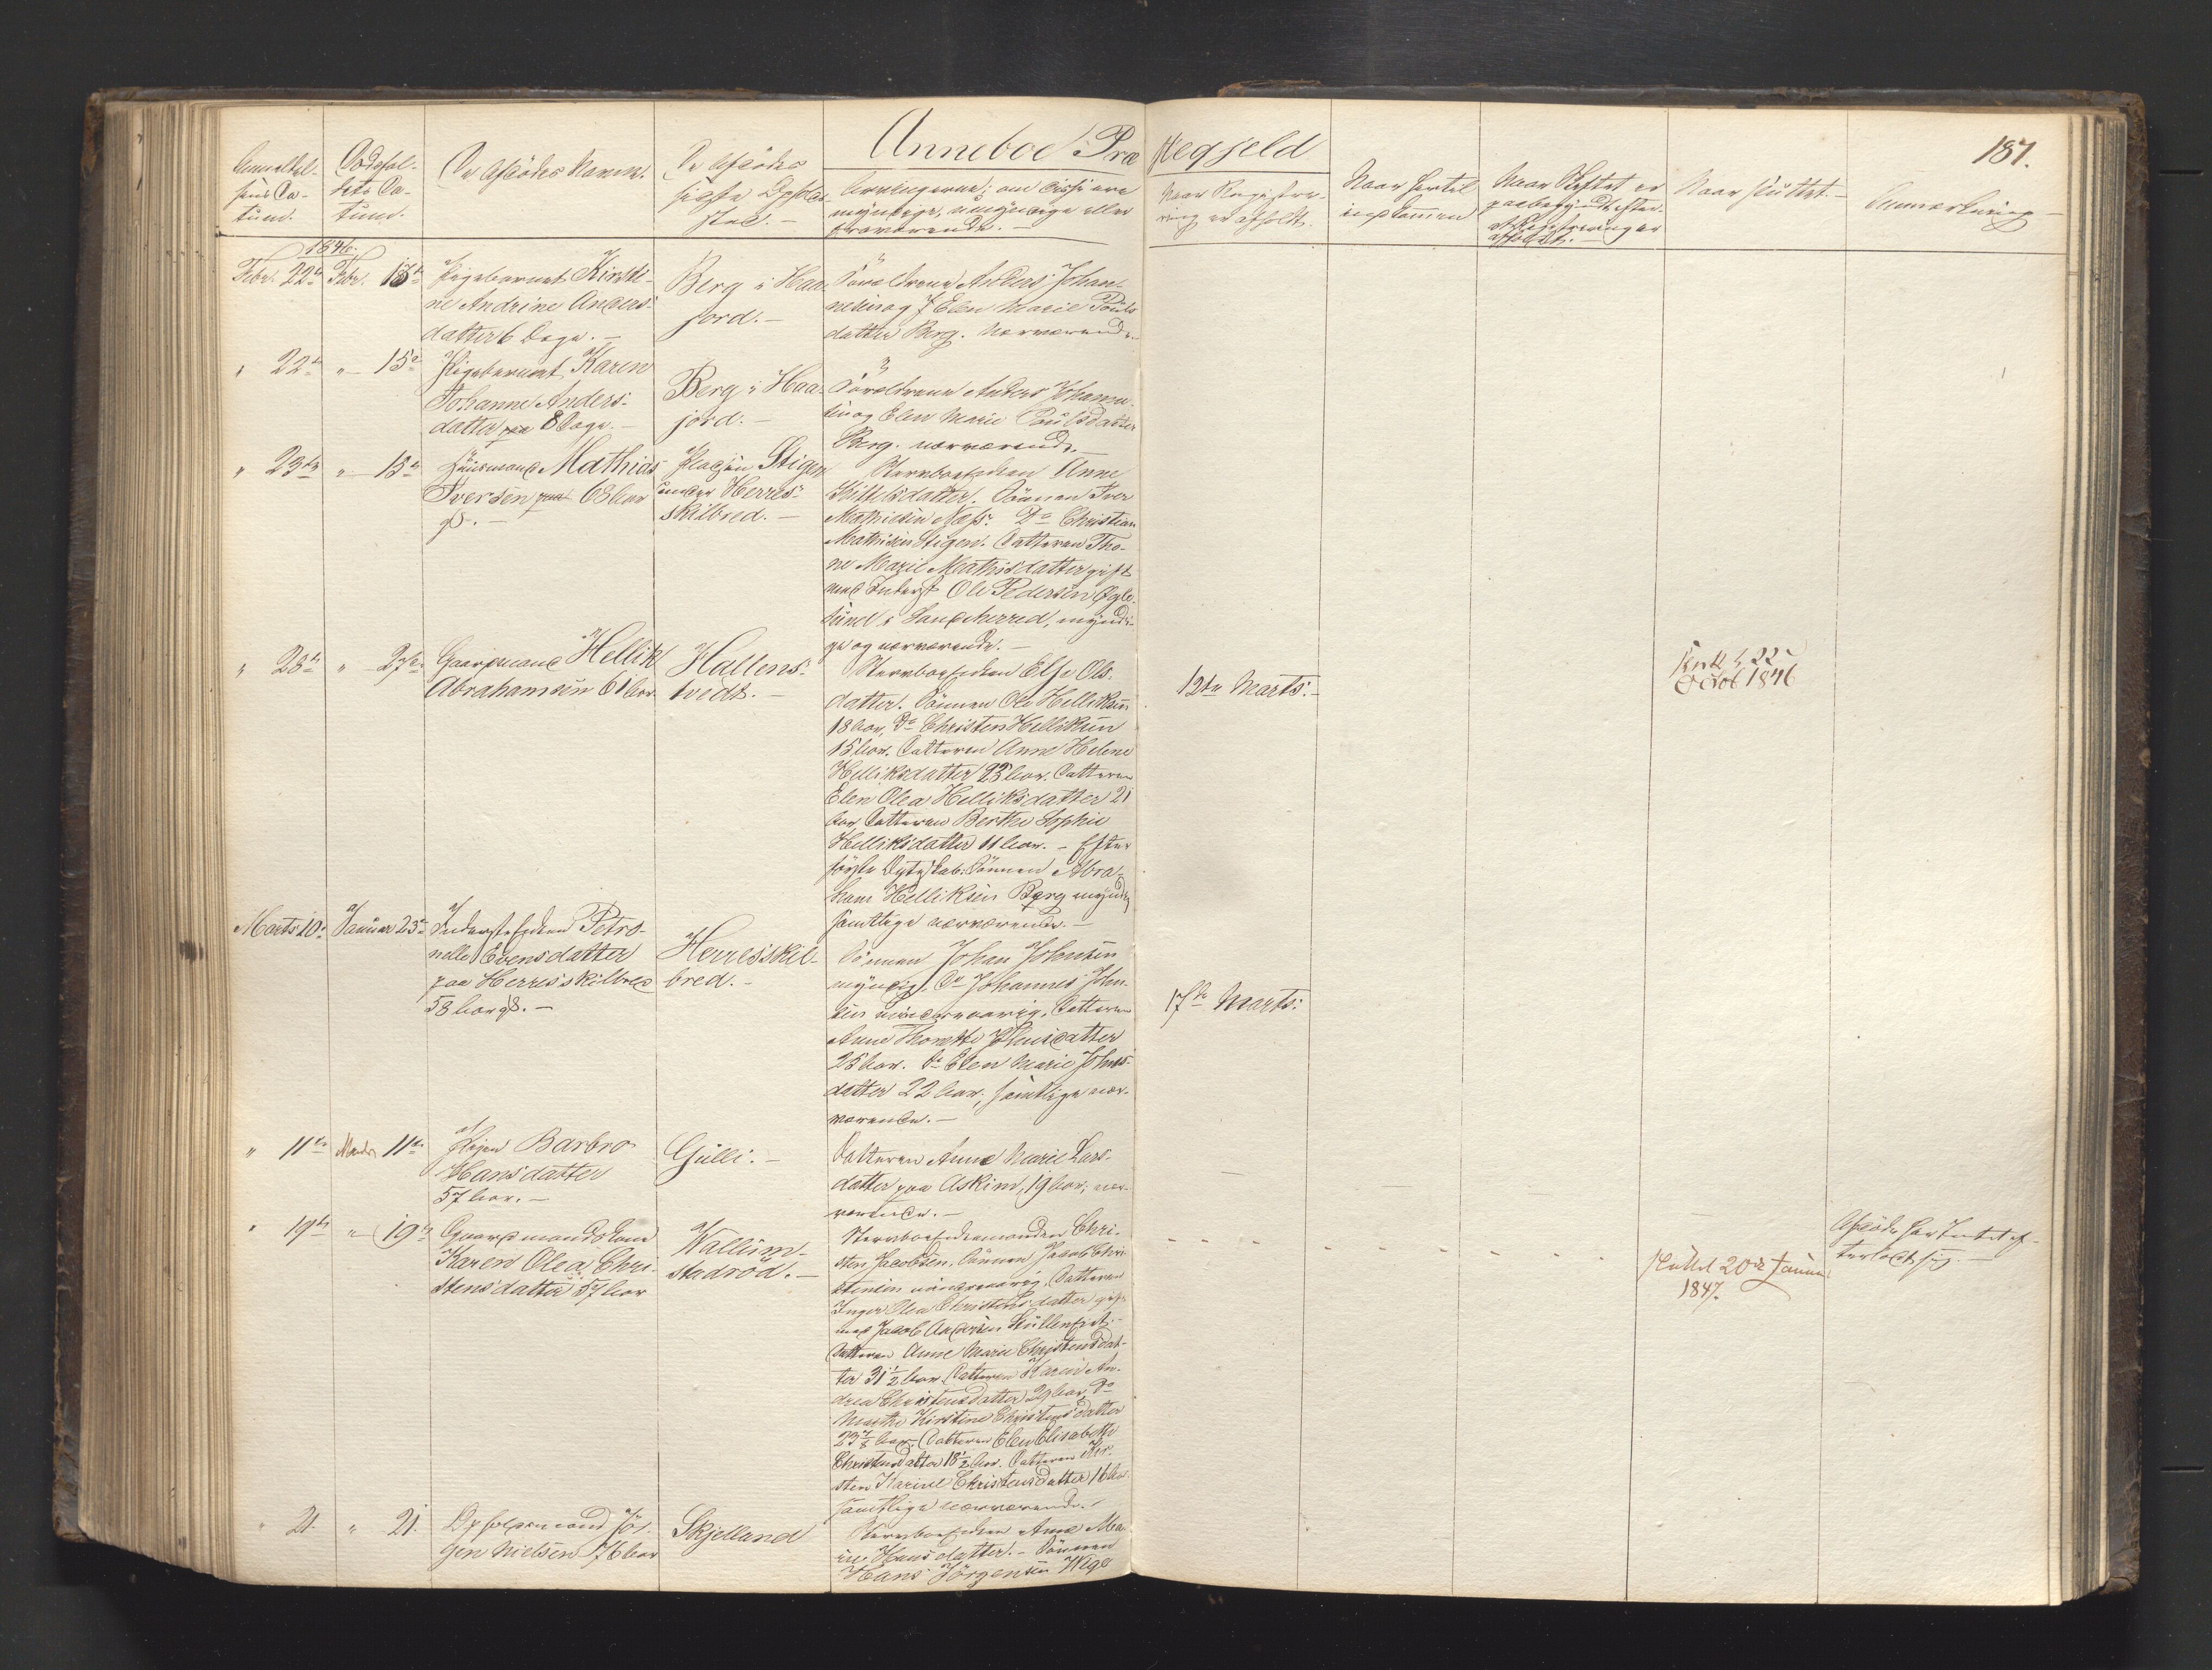 Anneboe Præstegjeld
187.
Anmeldel-
sens Da-
tum.
Dødsfal-
dets Da-
tum.
De Afdødes Navn.
De Afdødes
sidste Opholds-
sted. —
Arvingerne; om disse ere
myndige, umyndige eller
fraværende. —
Naar Registre-
ring er afholdt.
Naar Skiftet er
paabegyndt efter
at Registrering er
afholdt. —
Naar sluttet. —
Anmærkning —
1846.
Febr. 22de
Febr. 13de
Pigebarnet Kirsti-
ne Andrine Anders-
datter 6 Dage. —
Berg i Haa-
jord. —
Forældrene Anders Johan-
nesen og Elen Marie Pouls
datter Berg. nærværende
" 22de
" 15de
Pigebarnet Karen
Johanne Anders-
datter 8 Dage. —
Berg i Haa-
jord. —
Forældrene Anders Johanne-
sen og Elen Marie Poulsdatter
Berg. nærværende
" 23de
" 13de
Huusmand Mathias
Iversen 68 Aar
gl. —
Pladsen Stigen
under Herres-
skilbred. —
Sterboenken Anne
Kittilsdatter. Sönnen Iver
Mathiesen Næss. Do Christian
Mathiesen Stigen. Datteren Tho-
ne Marie Mathisdatter gift
med Inderst Ole Pedersen Ogle-
sund i Sandeherred, myndi-
ge og nærværende. —
" 28de
" 27de
Gaardmand Hellik
Abrahamsen 61 Aar
Hallens-
tvedt. —
Sterboenken Else Ols-
datter. Sönnen Ole Helliksen
18 Aar, Do Christen Helliksen
15 Aar. Datteren Anne Helene
Helliksdatter 23 Aar. Datteren
Elen Olea Helliksdatter 21
Aar Datteren Berthe Sophie
Helliksdatter 11 Aar. — Efter
første Ægteskab: Sönnen Abra-
ham Helliksen Berg myndig
samtlige nærværende. —
12te Marts. —
22
Octob 1846
Marts 10de
Januar 23de
Inderstenken Petro-
nelle Evensdatter
paa Herresskilbred
58 Aar gl. —
Herresskil-
bred. —
Sönnen Johan Johnsen
myndig, Do Johannes John-
sen mindreaarig, Datteren
Anne Thorette Johnsdatter
25 Aar. Do Elen Marie Johns-
datter 22 Aar, samtlige nær-
værende. —
17de Marts:
" 11te
Marts 11te
Pigen Barbro
Hansdatter
57 Aar. —
Gulli. —
Datteren Anne Marie Lars-
datter paa Askim, 19 Aar; nær-
værende. —
Afdøde har Intet ef-
terladt sig. —
" 19de
" 19de
Gaardmandskone
Karen Olea Chri-
stensdatter 57 Aar
Wallum-
stadröd. —
Sterboenkemanden Chri-
sten Jacobsen. Sönnen Jacob Chri-
stensen mindreaarig, Datteren
Inger Olea Christensdatter gift
med Jacob Andersen
Datteren Anne Marie Christensdat-
ter 31½ Aar. Datteren Karen An-
drea Christensdatter 29 Aar, Do
Marthe Kirstine Christensdatter
23⅞ Aar, Datteren Elen Elisabeth
Christensdatter 18½ Aar. Datteren Kir-
sten Karine Christensdatter 16 Aar
samtlige nærværende.
sluttet 20de Januar
1847.
" 21.
" 21.
Opholdsmand Jör-
gen Nielsen 76 Aar
Skjelland
Sterboenken Anne Ma-
rie Hansdatter. — Sönnen
Hans Jörgensen Wige